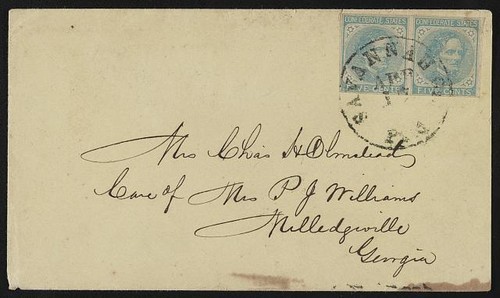 CONFEDERATE STATES CONFEDERATE STATES
FIVE CENTS FIVE CENTS
SAVANNAH
APR
Mrs Chas H Olmstead
Care of Mrs P J Williams
Milledgeville
Georgia